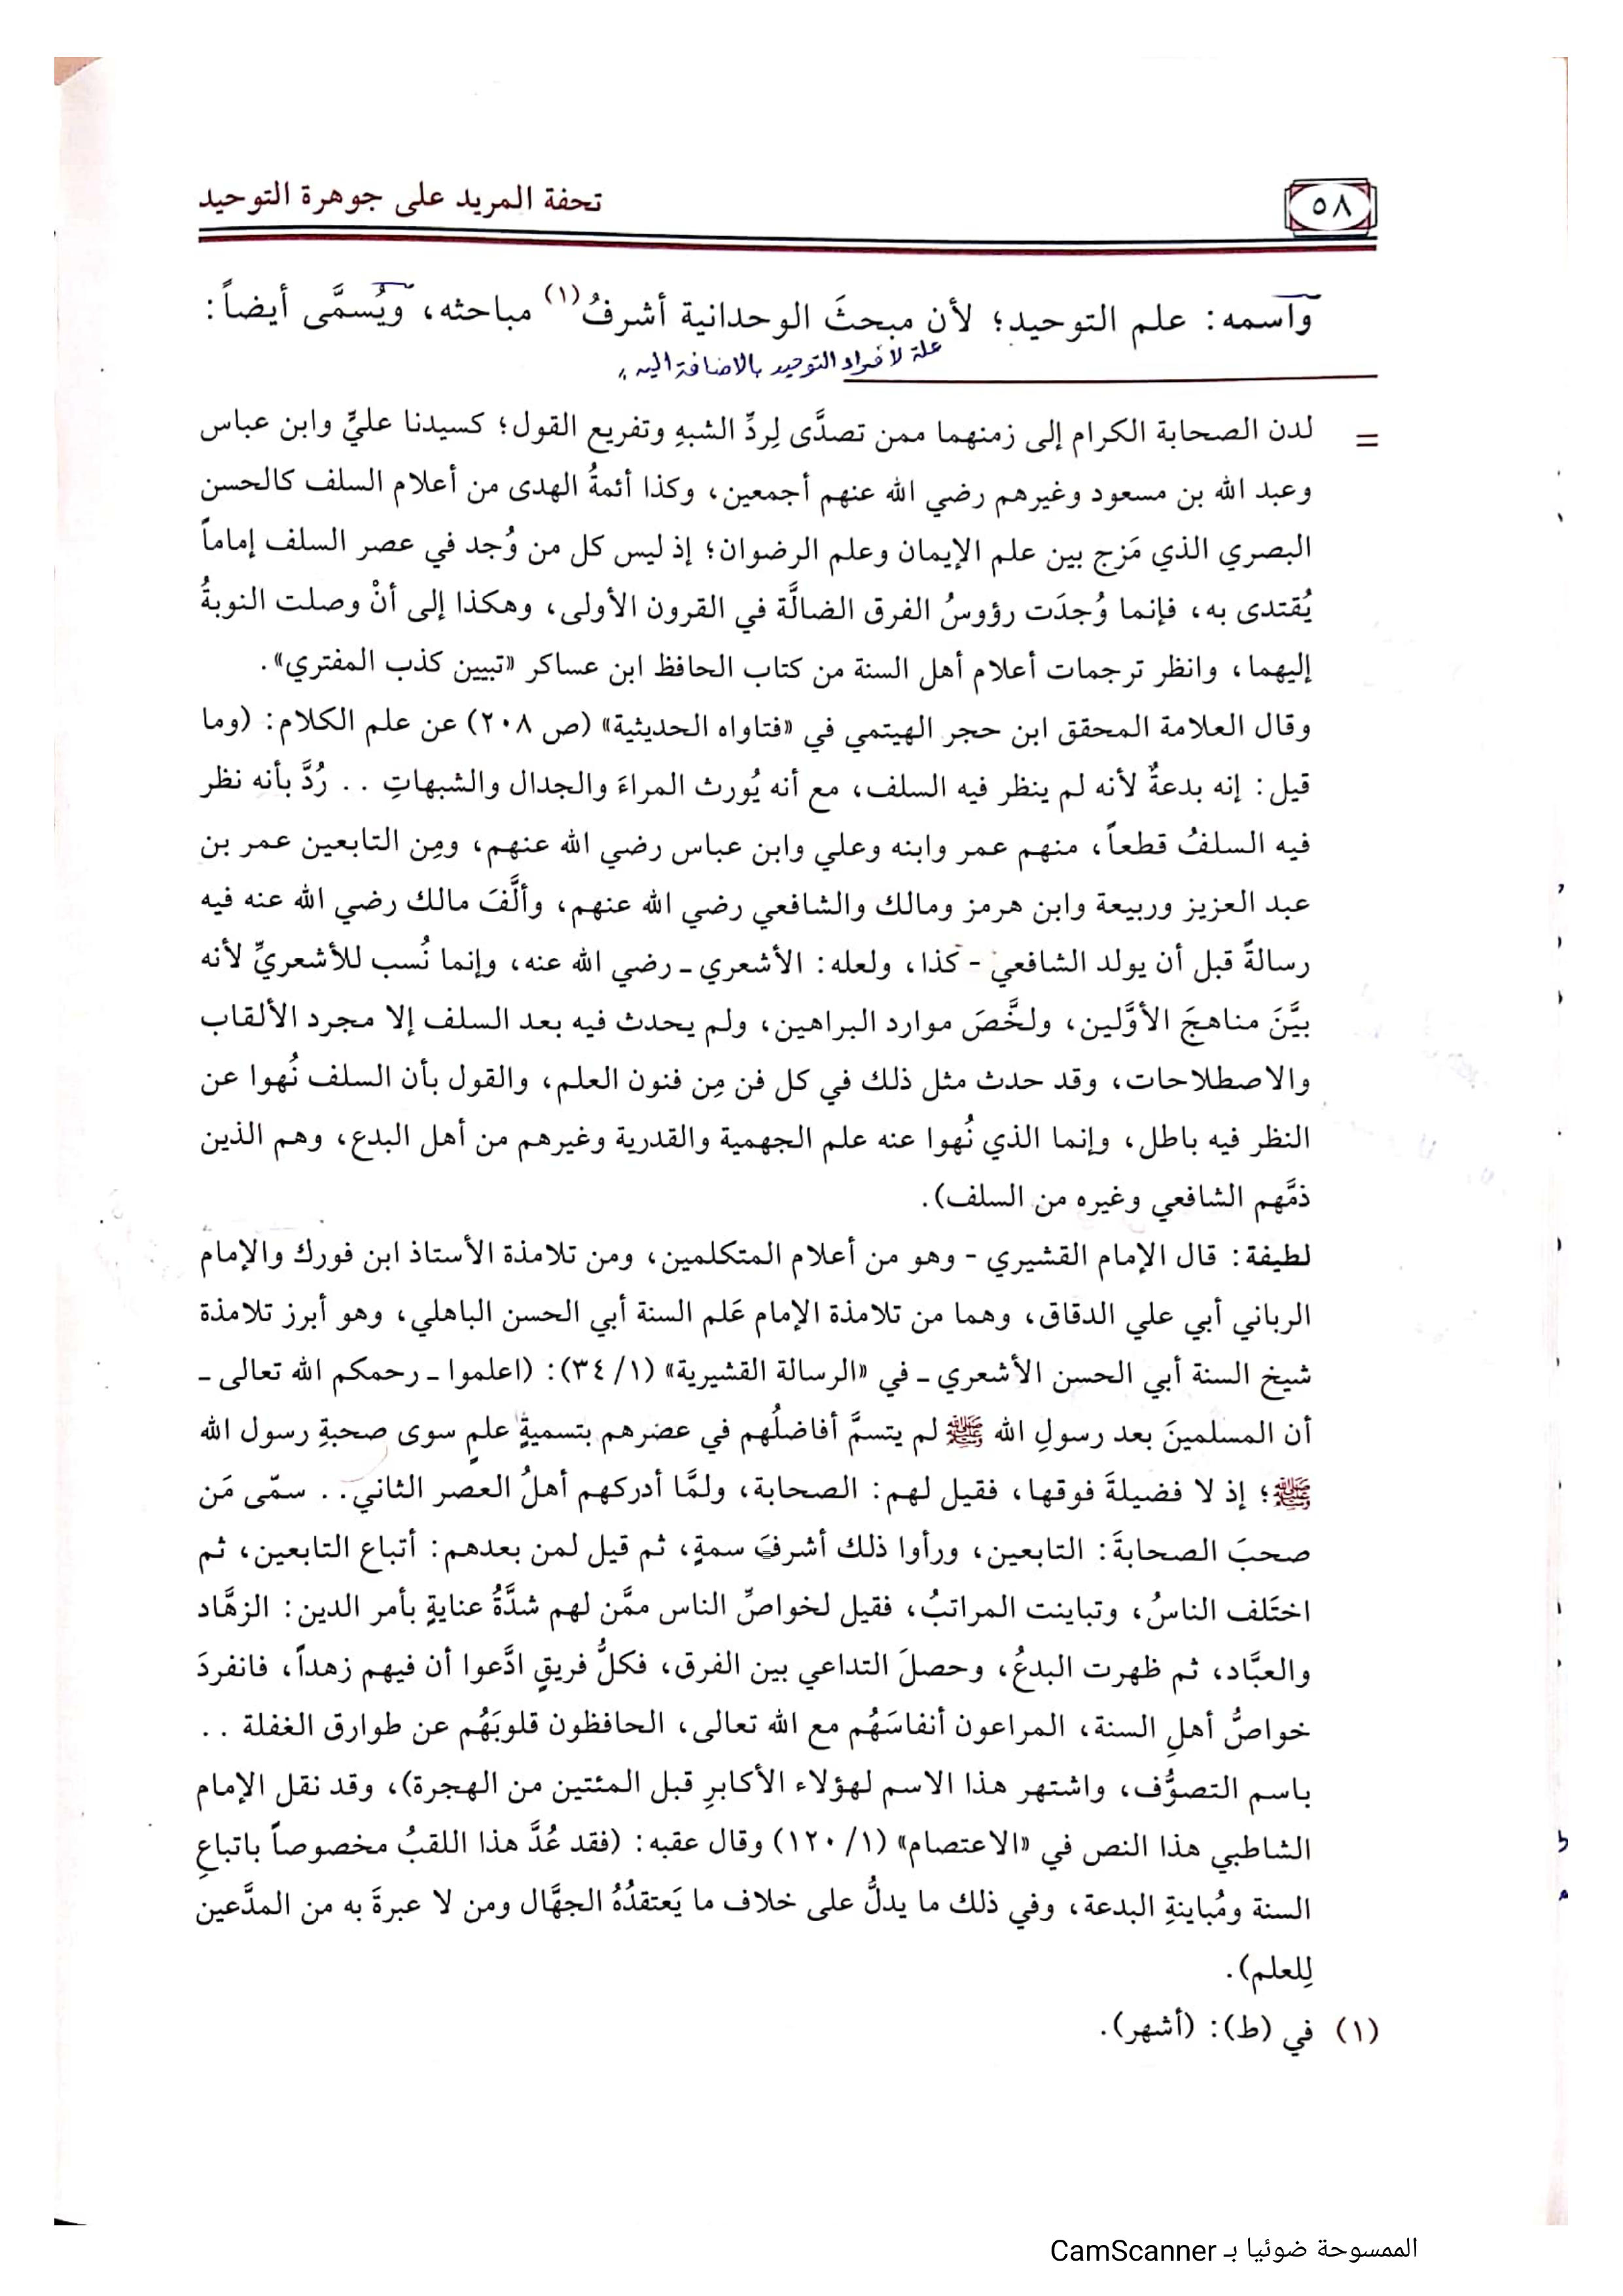 ٥٨
تحفة المريد على جوهرة التوحيد
واسمه: علم التوحيد؛ لأن مبحثَ الوحدانية أشرفُ(١) مباحثه، ويُسمَّى أيضاً:
علة لافراد التوحيد بالاضافة اليه
= لدن الصحابة الكرام إلى زمنهما ممن تصدَّى لِردِّ الشبهِ وتفريع القول؛ كسيدنا عليٍّ وابن عباس
وعبد الله بن مسعود وغيرهم رضي الله عنهم أجمعين، وكذا أئمةُ الهدى من أعلام السلف كالحسن
البصري الذي مَزج بين علم الإيمان وعلم الرضوان؛ إذ ليس كل من وُجد في عصر السلف إماماً
يُقتدى به، فإنما وُجدَت رؤوسُ الفرق الضالَّة في القرون الأولى، وهكذا إلى أنْ وصلت النوبةُ
إليهما، وانظر ترجمات أعلام أهل السنة من كتاب الحافظ ابن عساكر «تبيين كذب المفتري».
وقال العلامة المحقق ابن حجر الهيتمي في «فتاواه الحديثية» (ص ٢٠٨) عن علم الكلام: (وما
قيل: إنه بدعةٌ لأنه لم ينظر فيه السلف، مع أنه يُورث المراءَ والجدال والشبهاتِ .. رُدَّ بأنه نظر
فيه السلفُ قطعاً، منهم عمر وابنه وعلي وابن عباس رضي الله عنهم، ومِن التابعين عمر بن
عبد العزيز وربيعة وابن هرمز ومالك والشافعي رضي الله عنهم، وألَّفَ مالك رضي الله عنه فيه
رسالةً قبل أن يولد الشافعي - كذا، ولعله: الأشعري ـ رضي الله عنه، وإنما نُسب للأشعريِّ لأنه
بيَّنَ مناهجَ الأوَّلين، ولخَّصَ موارد البراهين، ولم يحدث فيه بعد السلف إلا مجرد الألقاب
والاصطلاحات، وقد حدث مثل ذلك في كل فن مِن فنون العلم، والقول بأن السلف نُهوا عن
النظر فيه باطل، وإنما الذي نُهوا عنه علم الجهمية والقدرية وغيرهم من أهل البدع، وهم الذين
ذمَّهم الشافعي وغيره من السلف).
لطيفة: قال الإمام القشيري - وهو من أعلام المتكلمين، ومن تلامذة الأستاذ ابن فورك والإمام
الرباني أبي علي الدقاق، وهما من تلامذة الإمام عَلم السنة أبي الحسن الباهلي، وهو أبرز تلامذة
شيخ السنة أبي الحسن الأشعري ـ في «الرسالة القشيرية» (١/ ٣٤): (اعلموا ـ رحمكم الله تعالى ـ
أن المسلمينَ بعد رسولِ الله ﷺ لم يتسمَّ أفاضلُهم في عصرهم بتسميةِ علمٍ سوى صحبةِ رسول الله
ﷺ؛ إذ لا فضيلةَ فوقها، فقيل لهم: الصحابة، ولمَّا أدركهم أهلُ العصر الثاني.. سمّى مَن
صحبَ الصحابةَ: التابعين، ورأوا ذلك أشرفَ سمةٍ، ثم قيل لمن بعدهم: أتباع التابعين، ثم
اختَلف الناسُ، وتباينت المراتبُ، فقيل لخواصِّ الناس ممَّن لهم شدَّةُ عنايةٍ بأمر الدين: الزهَّاد
والعبَّاد، ثم ظهرت البدعُ، وحصلَ التداعي بين الفرق، فكلُّ فريقٍ ادَّعوا أن فيهم زهداً، فانفردَ
خواصُّ أهلِ السنة، المراعون أنفاسَهُم مع الله تعالى، الحافظون قلوبَهُم عن طوارق الغفلة ..
باسم التصوُّف، واشتهر هذا الاسم لهؤلاء الأكابرِ قبل المئتين من الهجرة)، وقد نقل الإمام
الشاطبي هذا النص في «الاعتصام» (١/ ١٢٠) وقال عقبه: (فقد عُدَّ هذا اللقبُ مخصوصاً باتباعِ
السنة ومُباينةِ البدعة، وفي ذلك ما يدلُّ على خلاف ما يَعتقدُهُ الجهَّال ومن لا عبرةَ به من المدَّعين
لِلعلم).
(١) في (ط): (أشهر).
الممسوحة ضوئيا بـ CamScanner